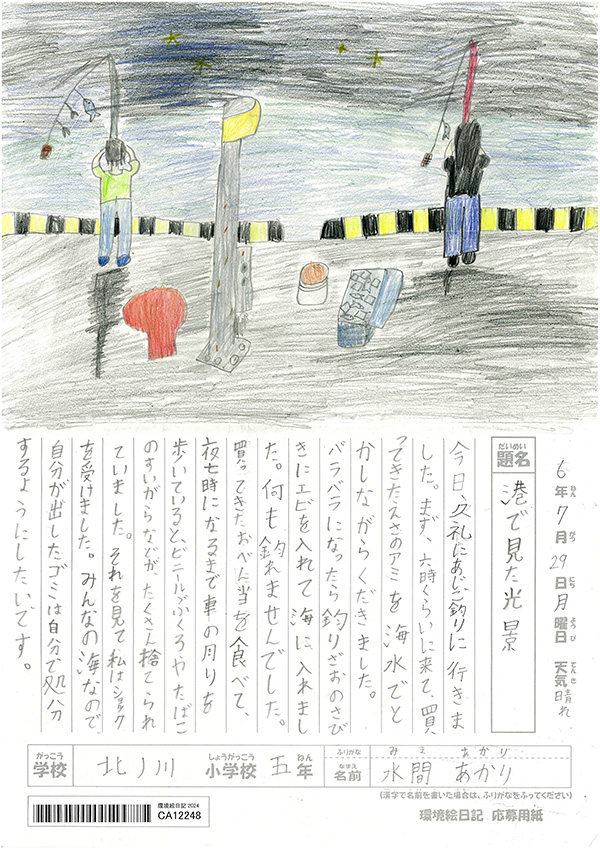 6年ねん7月がつ29日にち月曜日ようび 天気てんき晴れ
だいめい
題名
港で見た光景
今日、久礼にあじ釣りに行きま
した。まず、六時ぐらいに来て、買
ってきたえさのアミを海水でと
かしながらくだきました。
バラバラになったら釣りざおのさび
きにエビを入れて海に入れまし
た。何も釣れませんでした。
買ってきたおべん当を食べて、
夜七時になるまで車の周りを
歩いていると、ビニールぶくろやたばこ
のすいがらなどがたくさん捨てられ
ていました。それを見て私はショック
を受けました。みんなの海なので、
自分が出したゴミは自分で処分
するようにしたいです。
がっこう しょうがっこう ねん ふりがな みま あかり
学校 北ノ川 小学校 五年 なまえ 名前 水間 あかり
(漢字で名前を書いた場合は、ふりがなをふってください)
環境絵日記 2024
CA12248
環境絵日記 応募用紙